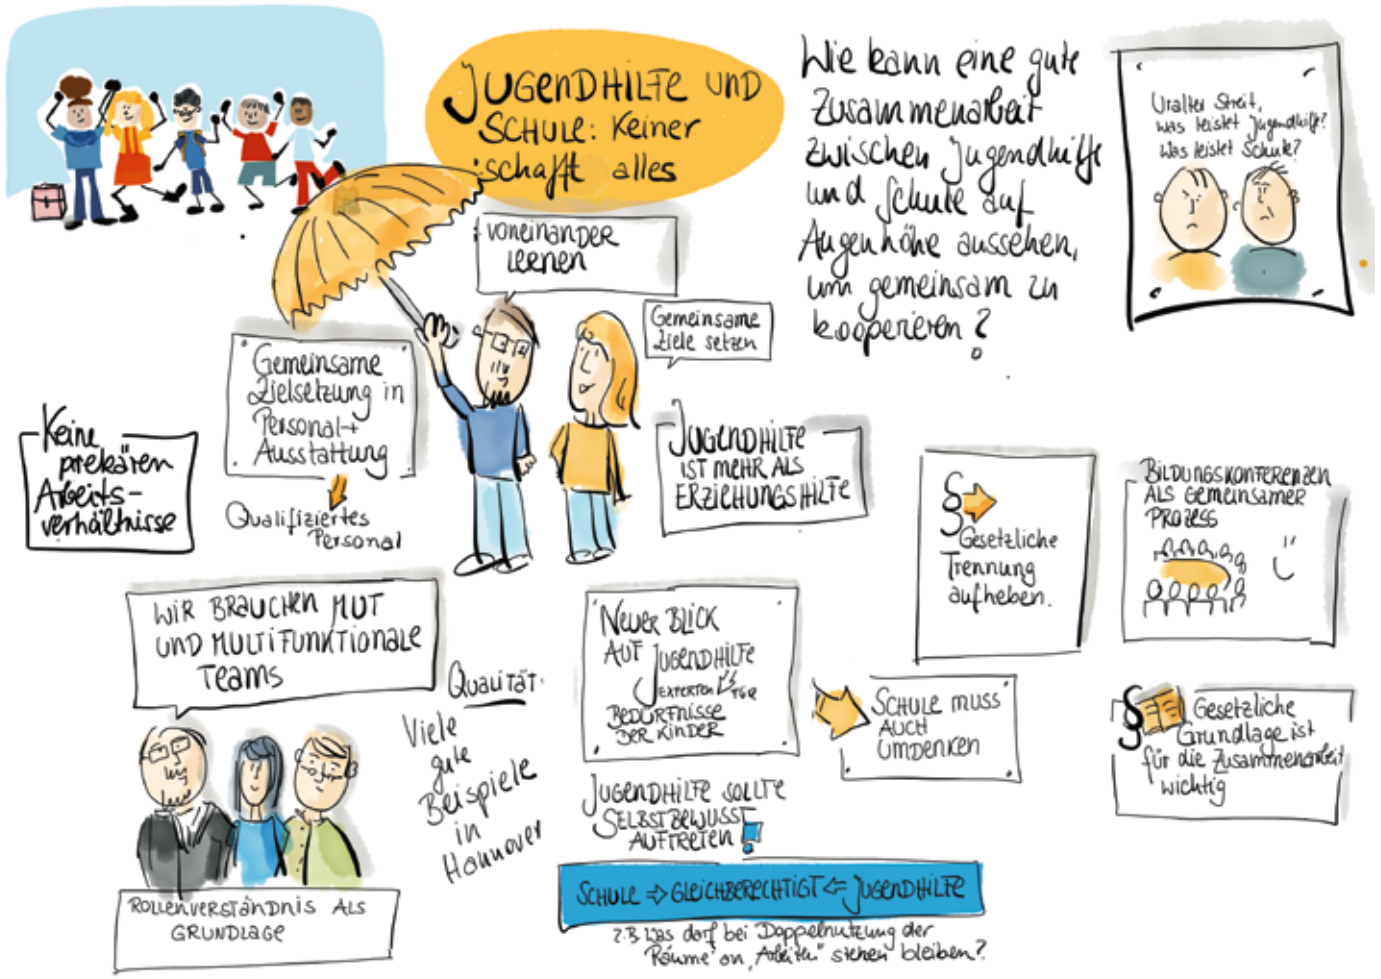 JUGENDHILFE UND
SCHULE: Keiner
schafft alles
Wie kann eine gute
Zusammenarbeit
zwischen Jugendhilfe
und Schule auf
Augenhöhe aussehen,
um gemeinsam zu
kooperieren?
Uralter Streit,
was leistet Jugendhilfe?
Was leistet Schule?
VONEINANDER
LERNEN
Gemeinsame
Ziele setzen
Gemeinsame
Zielsetzung in
Personal-+
Ausstattung
Qualifiziertes
Personal
Keine
prekären
Arbeits-
verhältnisse
JUGENDHILFE
IST MEHR ALS
ERZIEHUNGSHILFE
§
Gesetzliche
Trennung
aufheben.
BILDUNGSKONFERENZEN
ALS GEMEINSAMER
PROZESS
WIR BRAUCHEN MUT
UND MULTIFUNKTIONALE
TEAMS
QUALITÄT
Viele
gute
Beispiele
in
Hannover
NEUER BLICK
AUF JUGENDHILFE
EXPERTEN
BEDÜRFNISSE
DER KINDER
SCHULE MUSS
AUCH
UMDENKEN
§ Gesetzliche
Grundlage ist
für die Zusammenarbeit
wichtig
JUGENDHILFE SOLLTE
SELBSTBEWUSST
AUFTRETEN!
ROLLENVERSTÄNDNIS ALS
GRUNDLAGE
SCHULE ⇒ GLEICHBERECHTIGT ⇐ JUGENDHILFE
z.B. Was darf bei Doppelnutzung der
Räume an "Arbeiten" stehen bleiben?